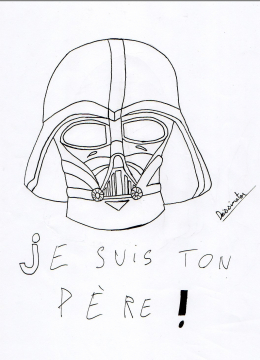 JE SUIS TON
PÈRE !